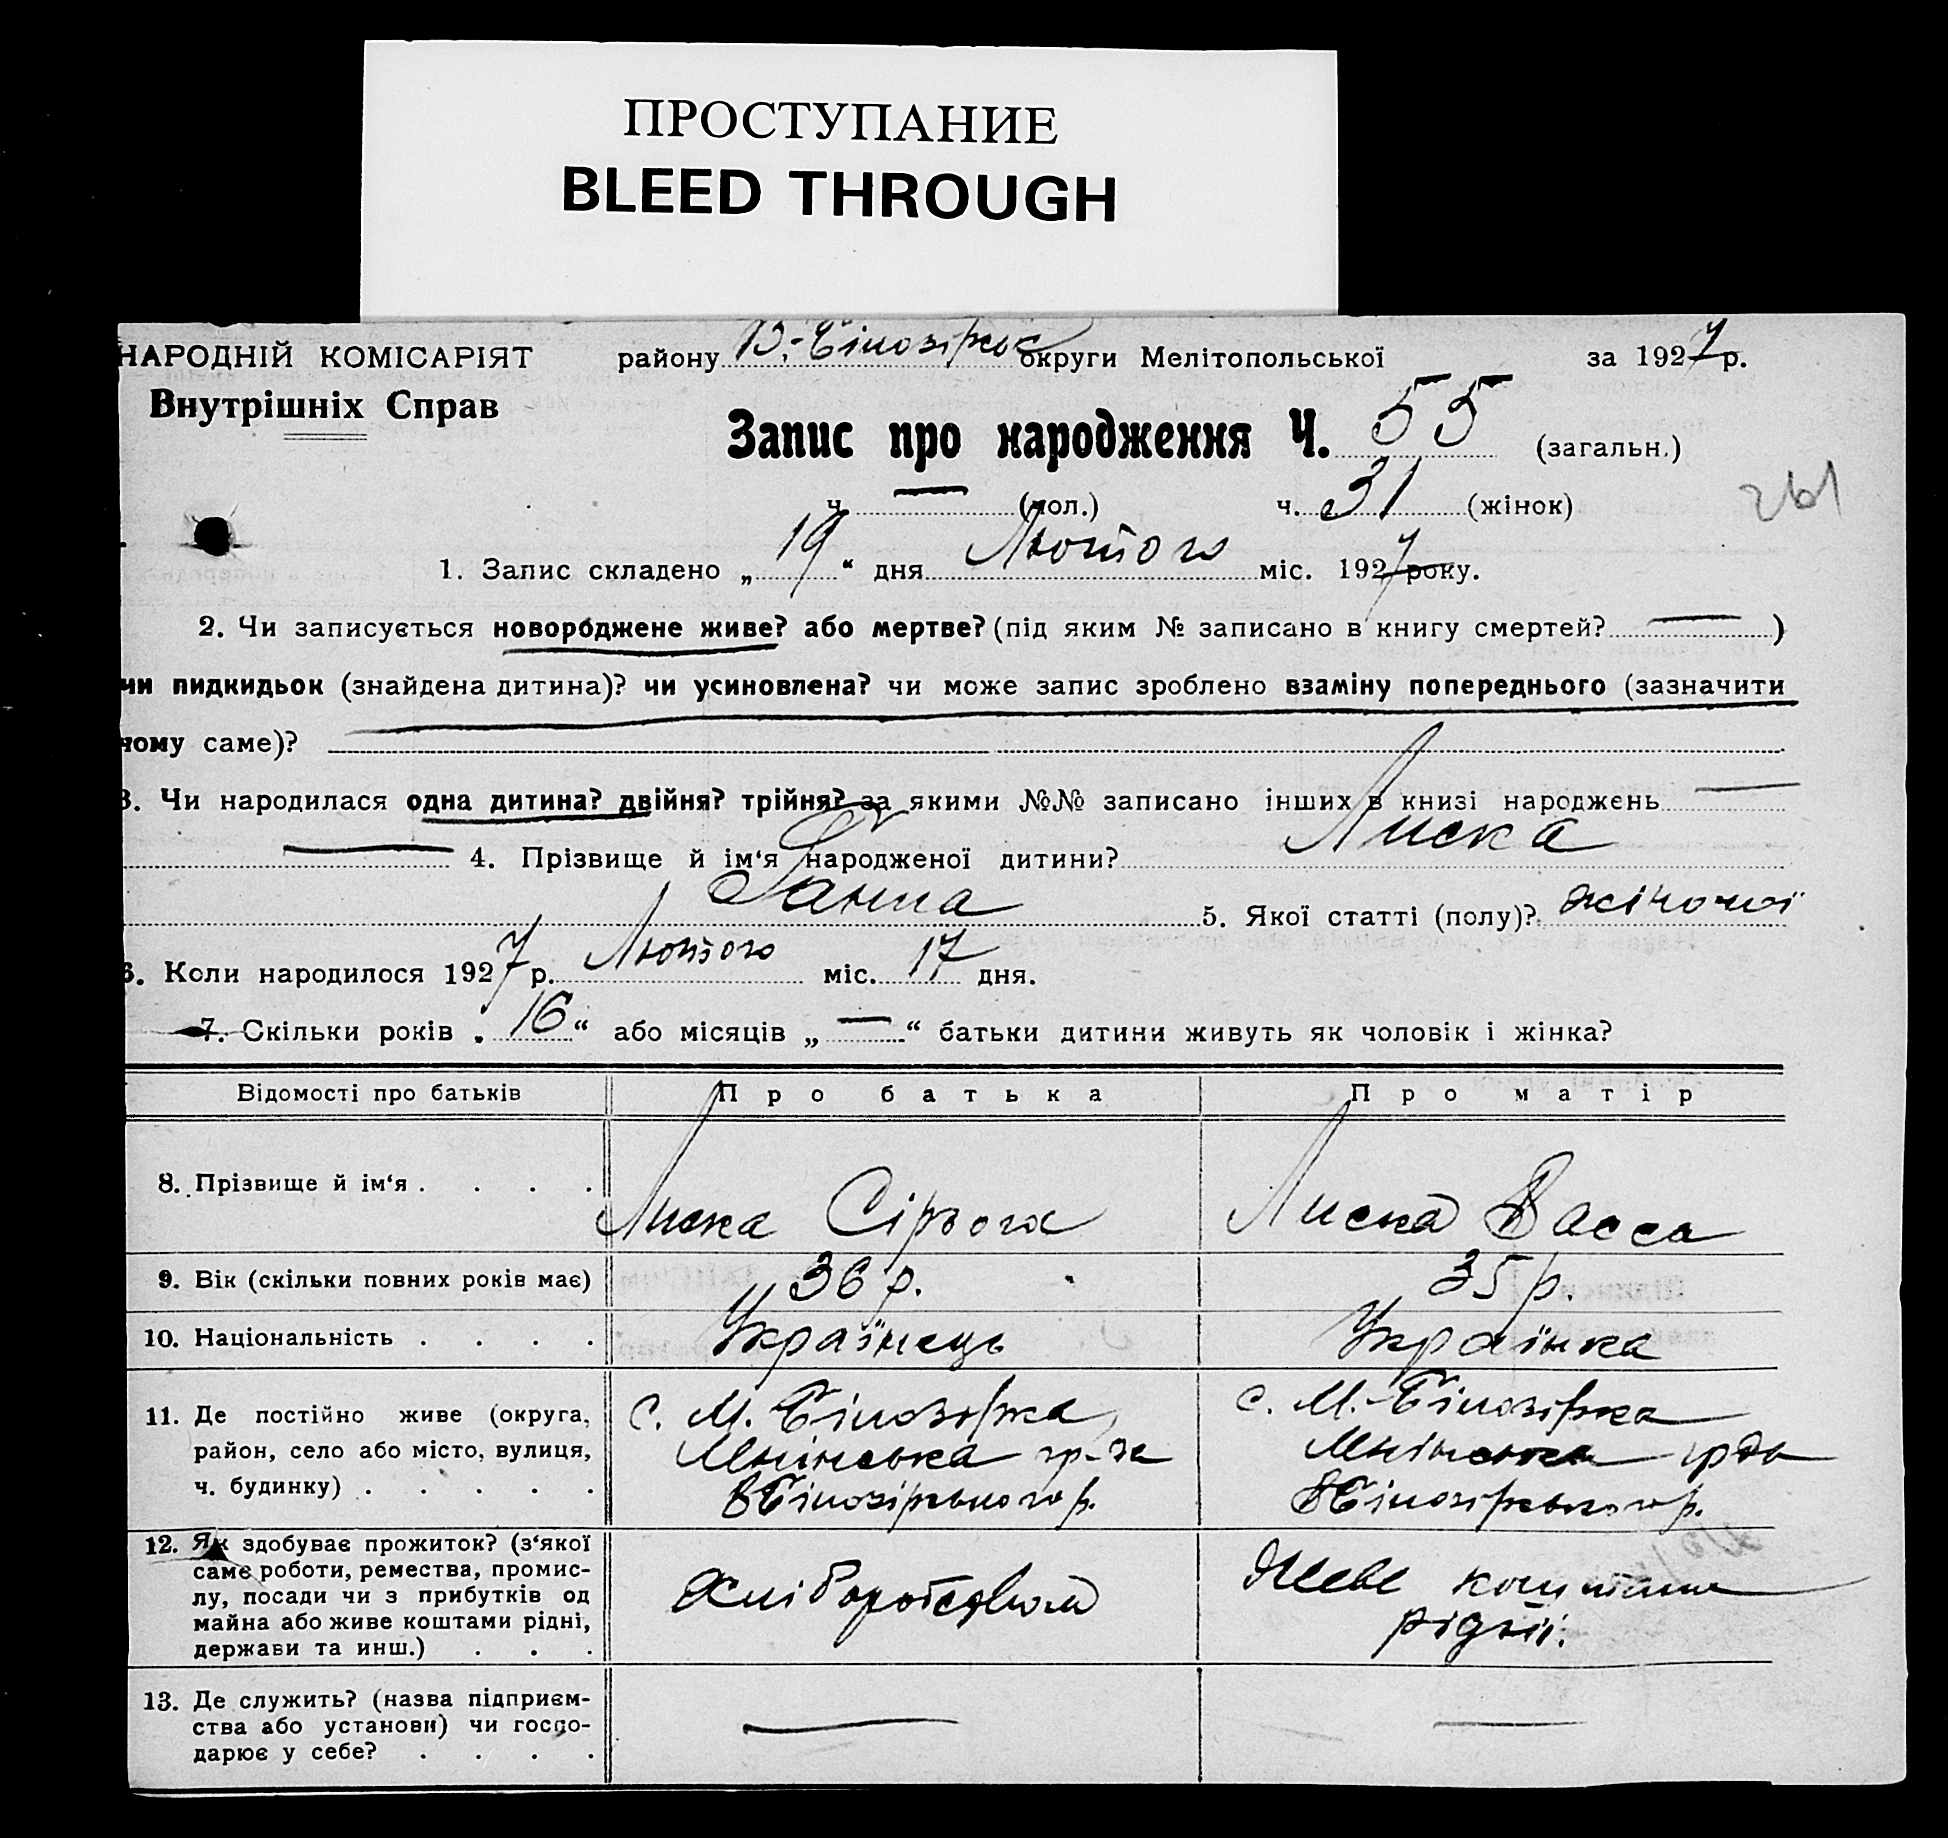 ПРОСТУПАНИЕ
BLEED THROUGH
НАРОДНІЙ КОМІСАРІЯТ району В.-Білозірськ округи Мелітопольської за 1927 р.
Внутрішніх Справ
Запис про народження Ч. 55 (загальн.)
ч. — (чол.) ч. 31 (жінок)
261
1. Запис складено „19“ дня Лютого міс. 1927 року.
2. Чи записується новорбджене живе? або мертве? (під яким № записано в книгу смертей? — )
чи пидкидьок (знайдена дитина)? чи усиновлена? чи може запис зроблено взаміну попереднього (зазначити
чому саме)?
3. Чи народилася одна дитина? двійня? трійня? за якими №№ записано інших в книзі народжень —
— 4. Прізвище й ім‘я народженої дитини? Лиска
Ганна 5. Якої статті (полу)? жіночої
6. Коли народилося 1927 р. Лютого міс. 17 дня.
7. Скільки років „16“ або місяців „—“ батьки дитини живуть як чоловік і жінка?
Відомості про батьків Про батька Про матір
8. Прізвище й ім‘я . . . . Лиска Сірьога Лиска Васса
9. Вік (скільки повних років має) 36 р. 35 р.
10. Національність . . . . Українець Українка
11. Де постійно живе (округа, с. М. Білозірка с. М.-Білозірка
район, село або місто, вулиця,
ч. будинку) . . . . . ВБілозірського р. ВБілозірського р.
12. Як здобуває прожиток? (з‘якої
саме роботи, ремества, промис-
лу, посади чи з прибутків од Хліборобством Живе коштами
майна або живе коштами рідні, рідні.
держави та инш.) . . .
13. Де служить? (назва підприєм-
ства або установи) чи госпо- — —
дарює у себе? . . . .